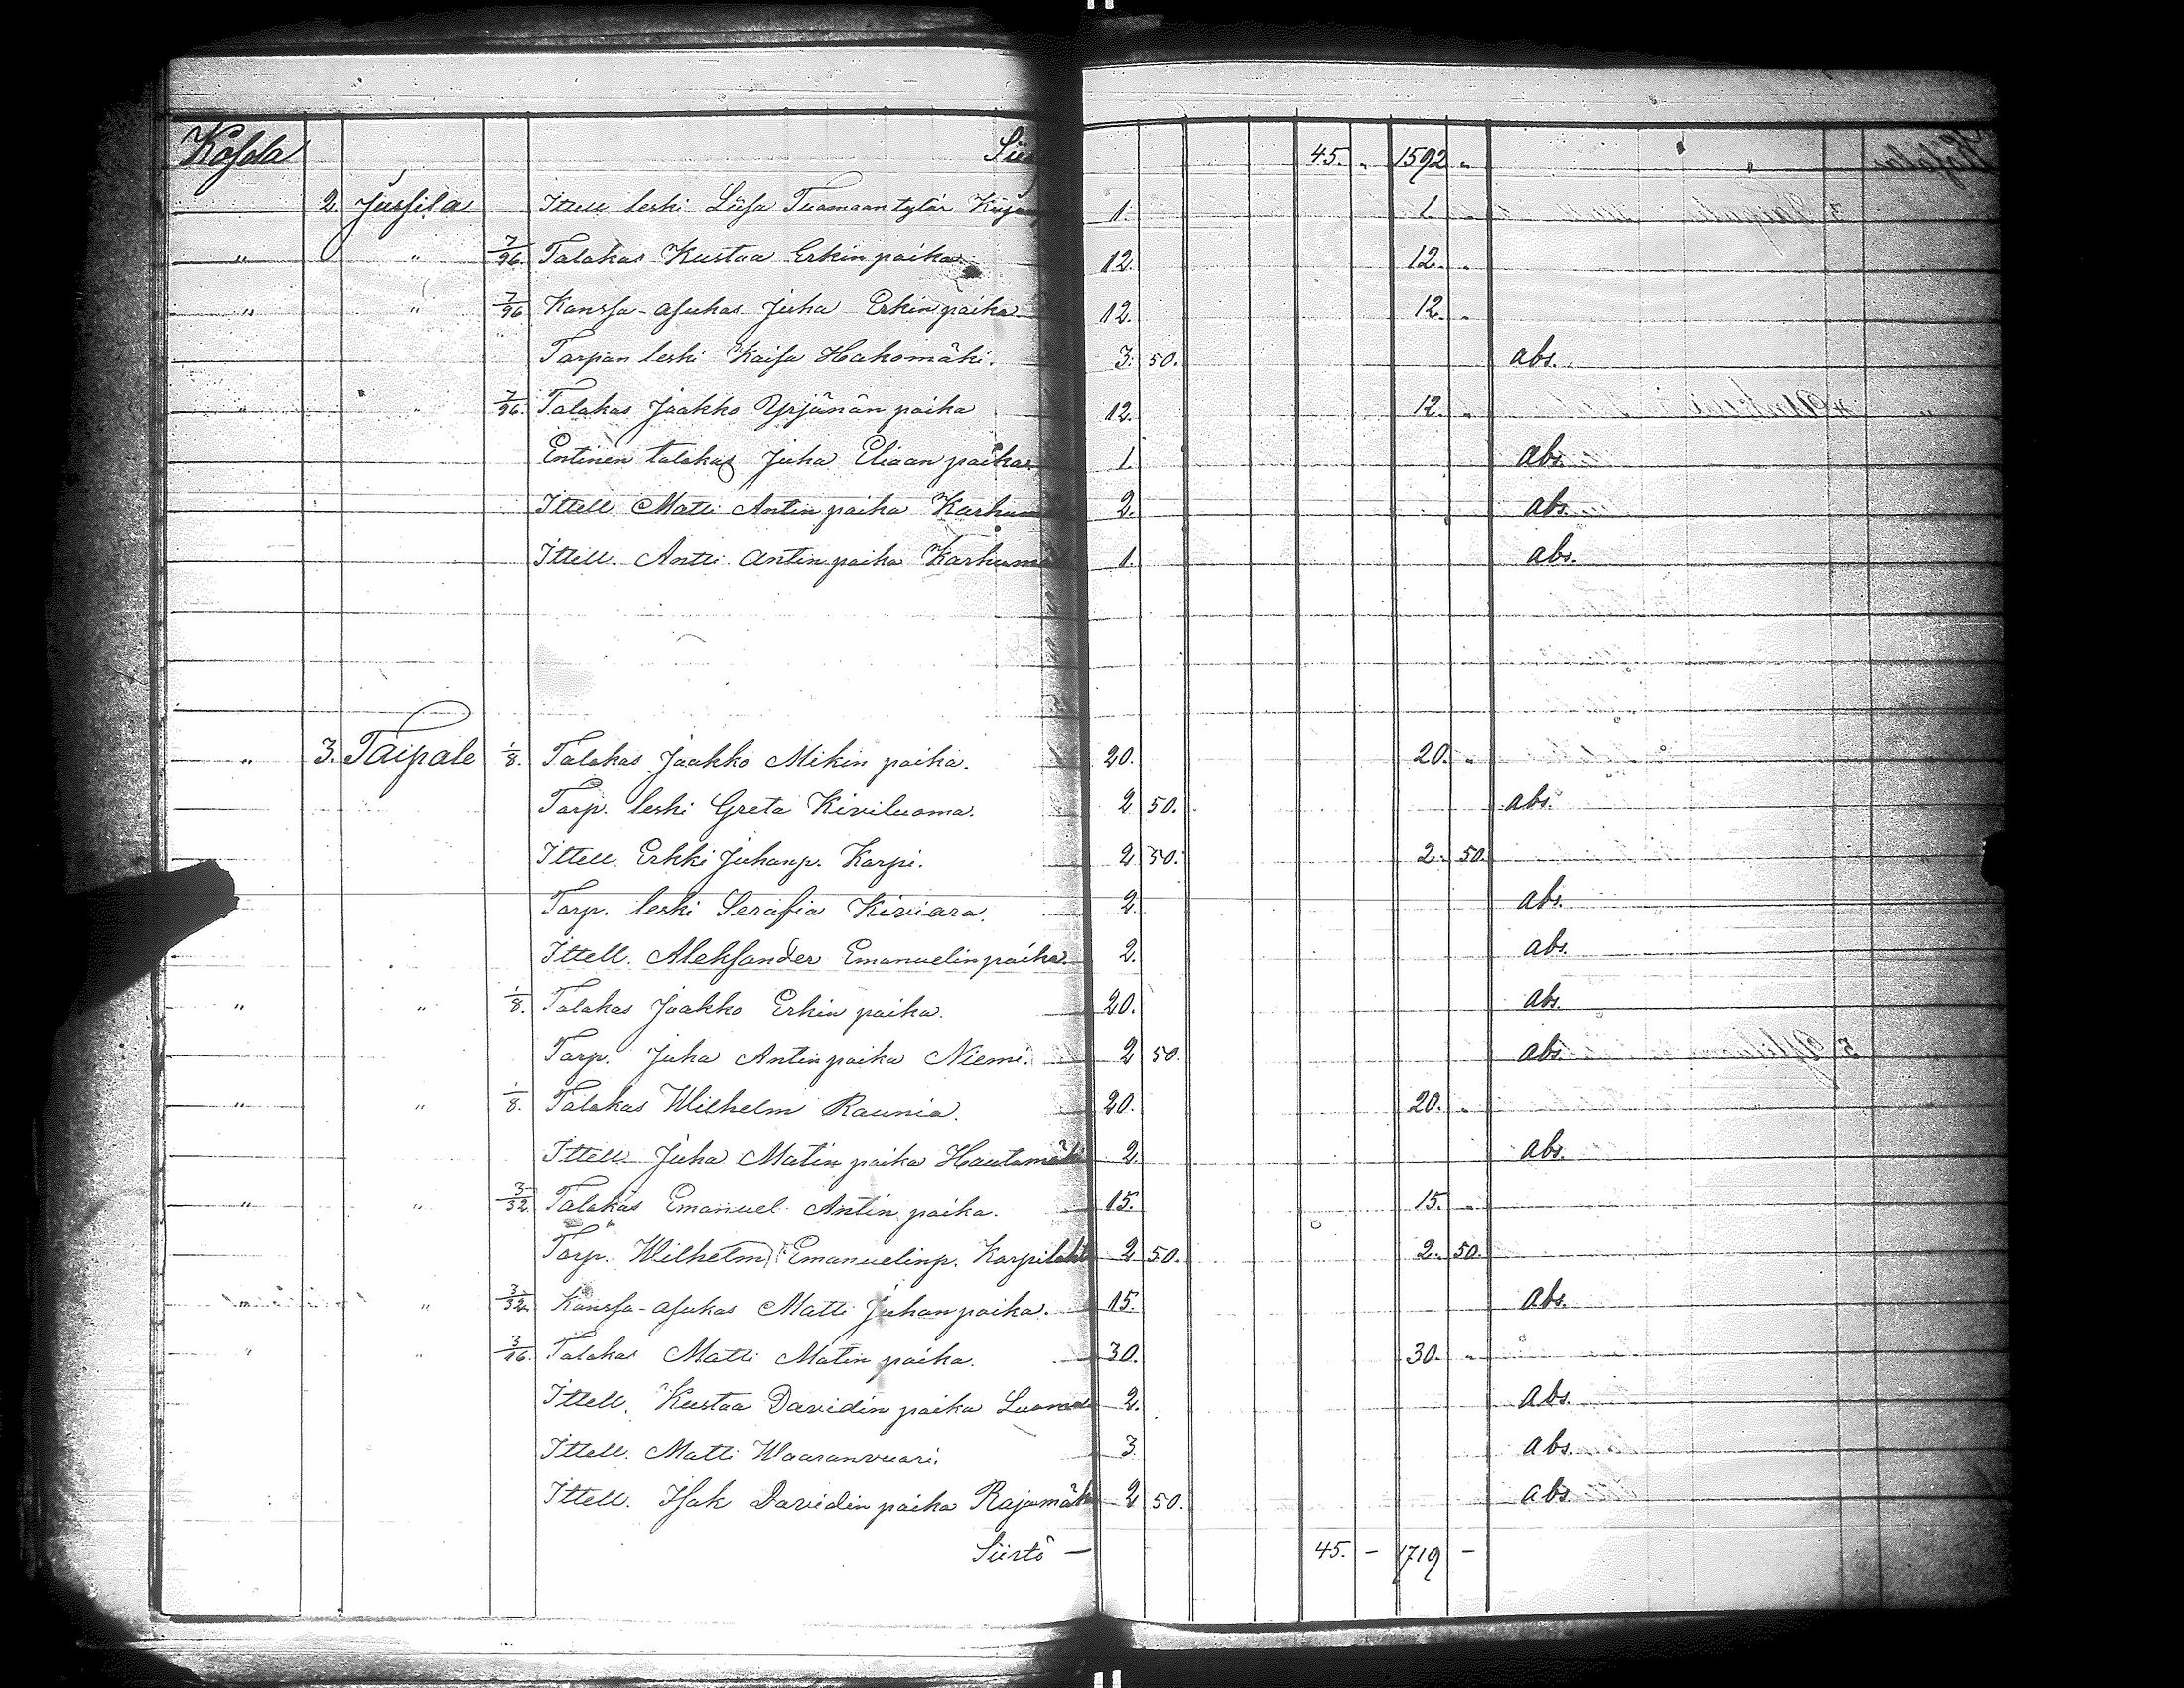 Kosola 45. „ 1592 „ „
2 Jussila Ittell. leski Liisa Tuomaantytär 1. 1.
„ „ 7/96. Talokas Kustaa Erkinpoika 12. 12. „
„ „ 7/96 Kanssa-asukas Juha Erkinpoika 12. 12. „
Torpan leski Kaisa Hakomäki. 3. 50. abs.
„ „ 7/96. Talokas Jaakko Yrjänän poika 12. 12. „
Entinen talokas Juha Eliaan poika 1. abs.
Ittell. Matti Antin poika 2. abs.
Ittell. Antti Antin poika 1. abs.
„ 3. Taipale 1/8. Talokas Jaakko Mikin poika. 20. 20. „
Torp. leski Greta Kiviluoma. 2 50. abs.
Ittell. Erkki Juhanp. Korpi. 2 50. 2. 50.
Torp. leski Serafia Kiviara. 2. abs.
Ittell. Aleksander Emanuelinpoika. 2. abs.
„ „ 1/8. Talokas Jaakko Erkin poika. 20. abs.
Torp. Juha Antinpoika Niemi. 2 50. abs.
„ „ 1/8. Talokas Wilhelm Raunia. 20. 20. „
Ittell. Juha Matin poika Hautamäki 2. abs.
„ „ 3/32. Talokas Emanuel Antin poika. 15. 15. „
Torp. Wilhelm Emanuelinp. 2 50. 2. 50.
„ „ 3/32. Kanssa-asukas Matti Juhanpoika. 15. abs.
„ „ 3/16. Talokas Matti Matin poika. 30. 30. „
Ittell. Kustaa Davidin poika 2. abs.
Ittell. Matti Waaranvuori. 3. abs.
Ittell. Isak Davidin poika Rajamäki 2 50. abs.
Siirtö — 45. – 1719 –